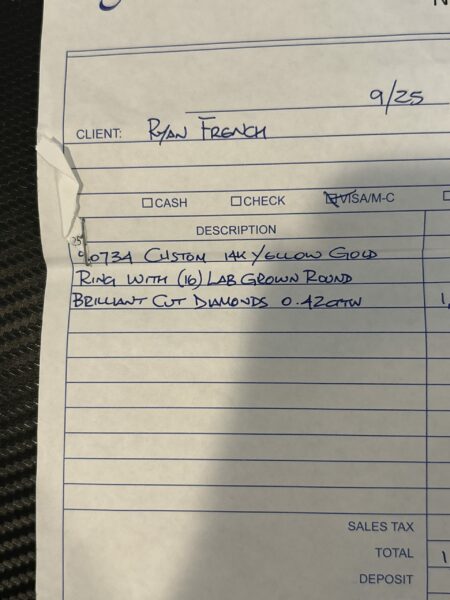 9/25
CLIENT: RYAN FRENCH
☐CASH ☐CHECK ☑VISA/M-C
DESCRIPTION
CUSTOM 14K YELLOW GOLD
RING WITH (16) LAB GROWN ROUND
BRILLIANT CUT DIAMONDS 0.42CTTW
SALES TAX
TOTAL 1
DEPOSIT